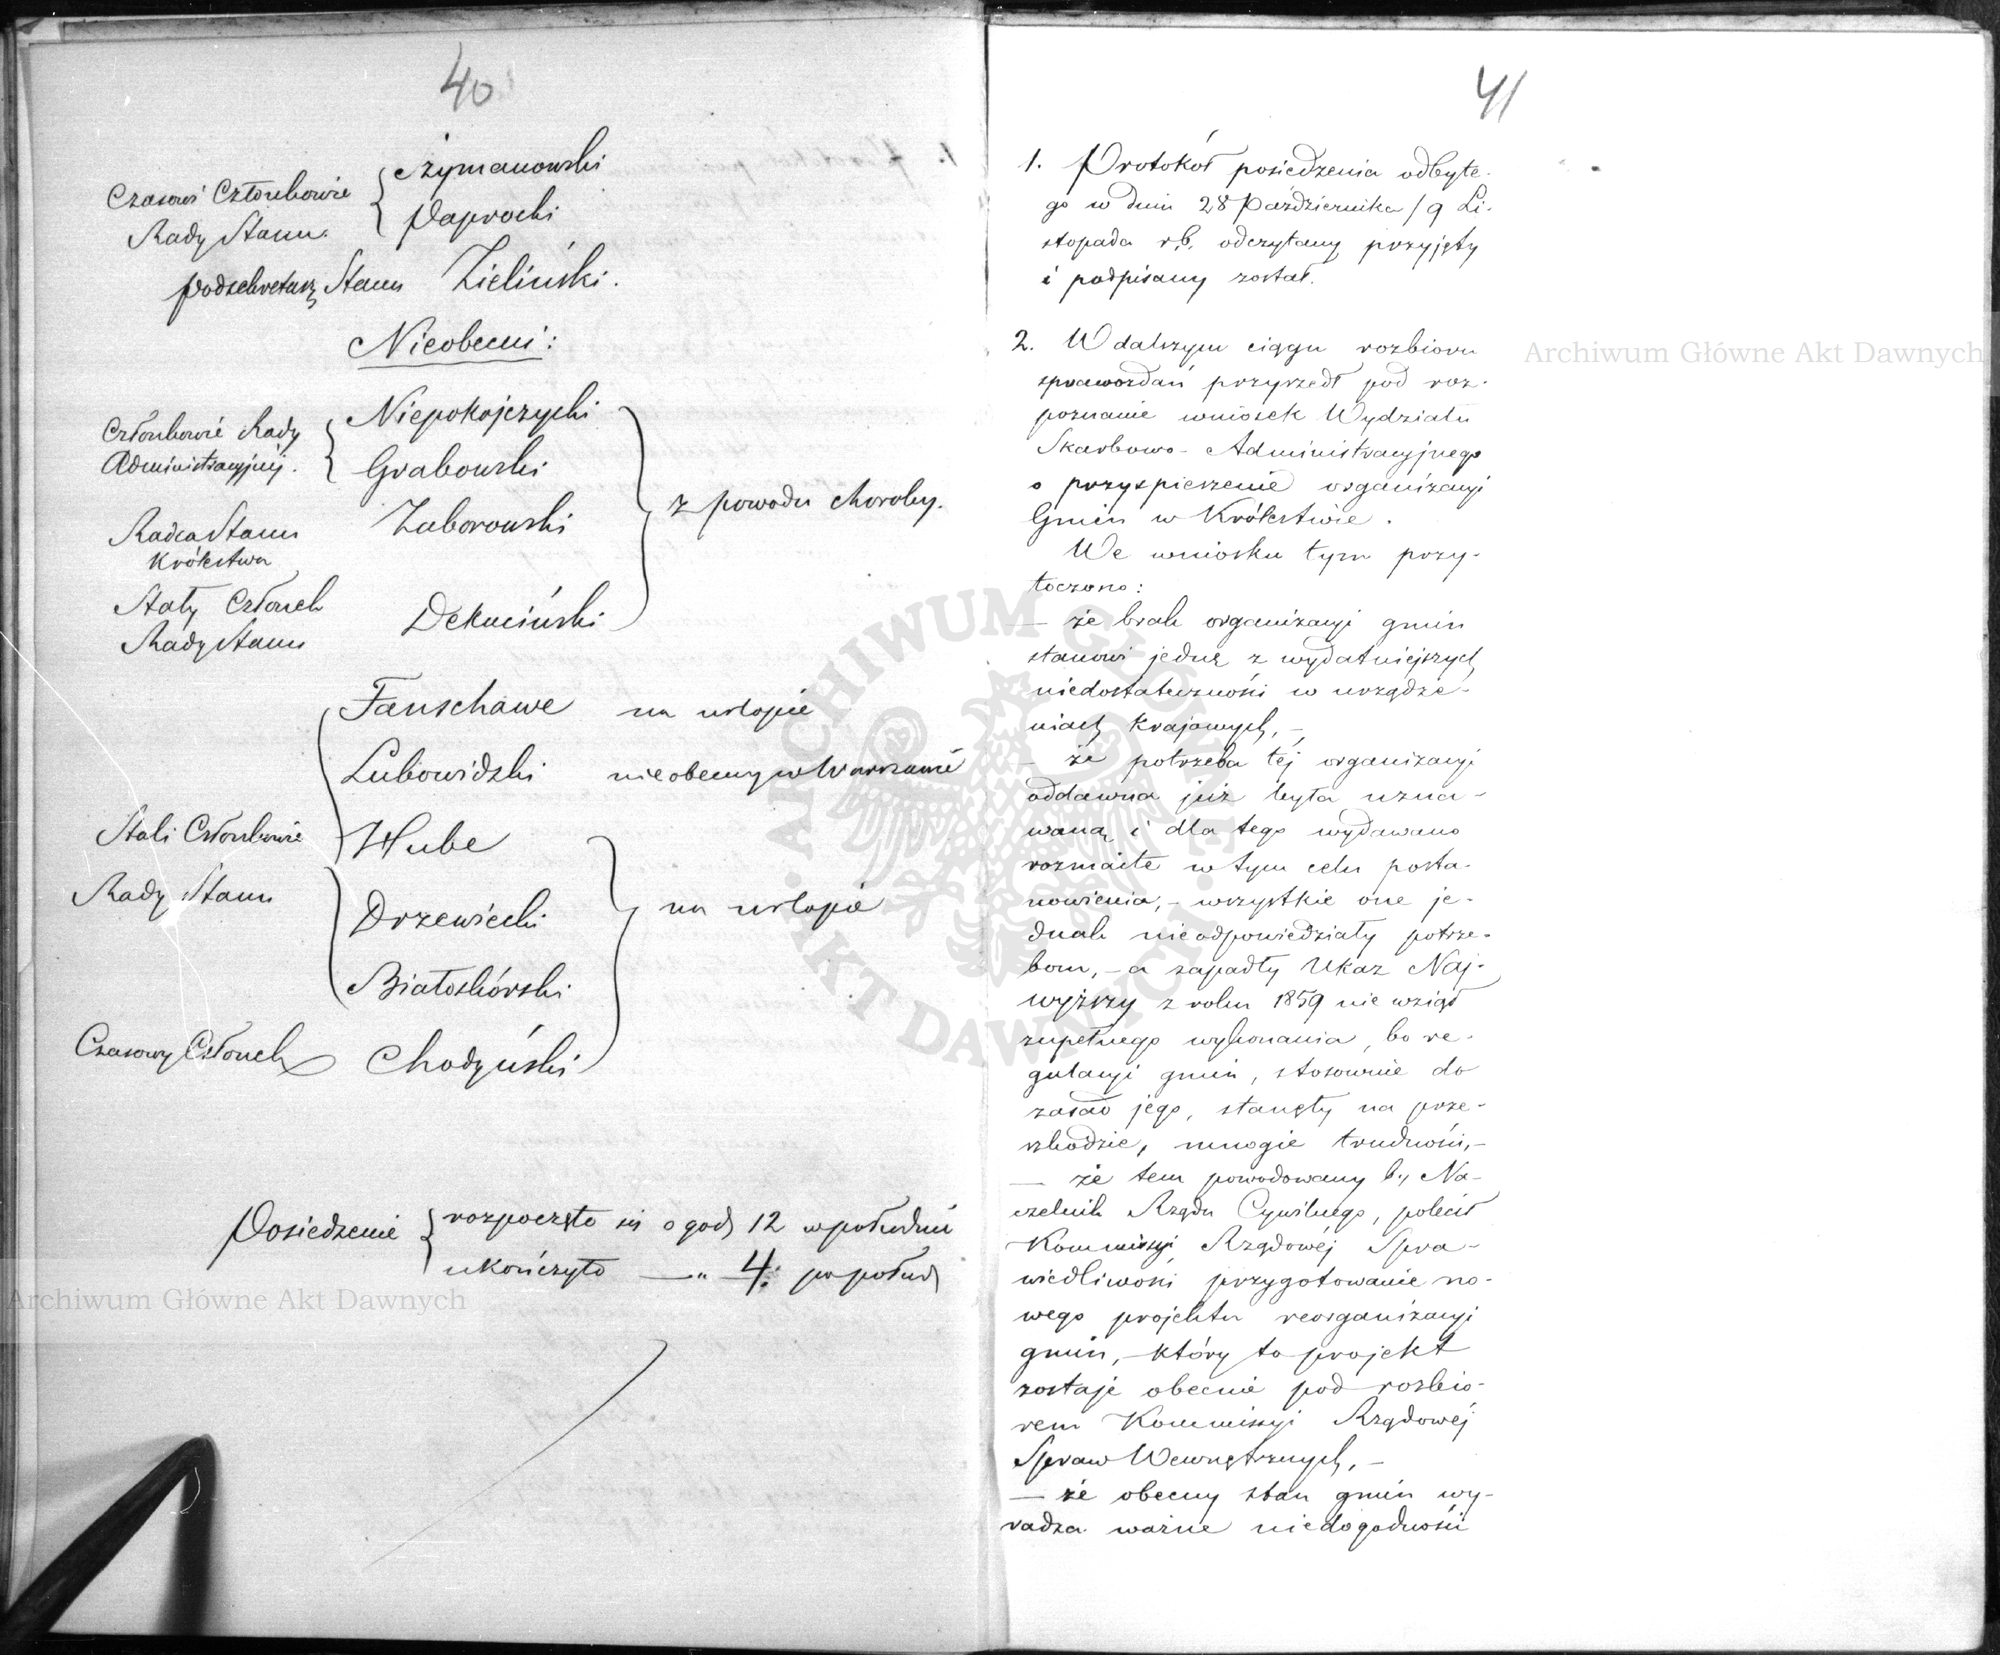 40
Czasowi Członkowie
Rady Stanu.
Szymanowski
Paprocki
Podsekretarz Stanu Zieliński.
Nieobecni:
Członkowie Rady
Administracyjnéj.
Niepokojczycki
Grabowski
Radca Stanu
Królestwa
Zaborowski
z powodu choroby.
Stały Członek
Rady Stanu
Dekuciński
Fanschawe na urlopie
Lubowidzki nieobecny w Warszawie
Stali Członkowie
Rady Stanu
Hube
Drzewiecki
na urlopie
Białoskórski
Czasowy Członek Chodyński
Posiedzenie
rozpoczęto się o god 12 w południe
ukończyło — „ 4. po połud
41
1. Protokół posiedzenia odbyte-
go w dniu 28 Października / 9 Li-
stopada r.b. odczytany przyjęty
i podpisany został.
2. W dalszym ciągu rozbioru
sprawozdań przyszedł pod roz-
poznanie wniosek Wydziału
Skarbowo-Administracyjnego
o przyspieszenie organizacyi
Gmin w Królestwie.
We wniosku tym przy-
toczono:
— że brak organizacyi gmin
stanowi jednę z wydatniejszych
niedostateczności w urządze-
niach Krajowych, –
– że potrzeba téj organizacyi
oddawna już była uzna-
waną i dla tego wydawano
rozmaite w tym celu posta-
nowienia, – wszystkie one je-
dnak nieodpowiedziały potrze-
bom, – a zapadły Ukaz Naj-
wyższy z roku 1859 nie wziął
zupełnego wykonania, bo re-
gulacyi gmin, stosownie do
zasad jego, stanęły na prze-
szkodzie, mnogie trudności, –
— że tem powodowany b. Na-
czelnik Rządu Cywilnego, polecił
Kommissyi Rządowéj Spra-
wiedliwości przygotowanie no-
wego projektu reorganizacyi
gmin, – który to projekt
zostaje obecnie pod rozbio-
rem Kommissyi Rządowéj
Spraw Wewnętrznych, –
— że obecny stan gmin wy-
radza ważne niedogodności
Archiwum Główne Akt Dawnych
Archiwum Główne Akt Dawnych
ARCHIWUM GŁÓWNE · AKT DAWNYCH ·